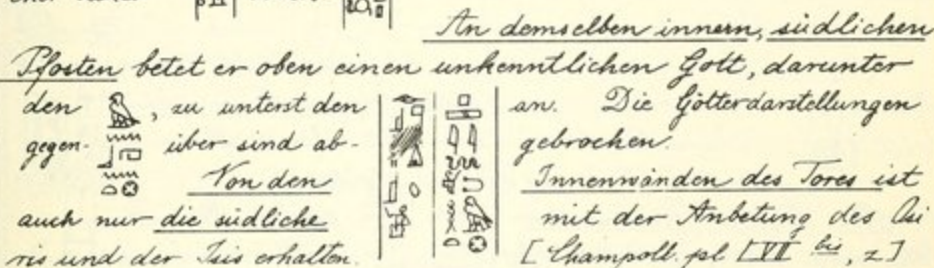 An demselben innern, südlichen
Pfosten betet er oben einen unkenntlichen Gott, darunter
den , zu unterst den an. Die Götterdarstellungen
gegen- über sind ab- gebrochen.
Von den Innenwänden des Tores ist
auch nur die südliche mit der Anbetung des Osi
ris und der Isis erhalten. [Champoll. pl bis, 2]